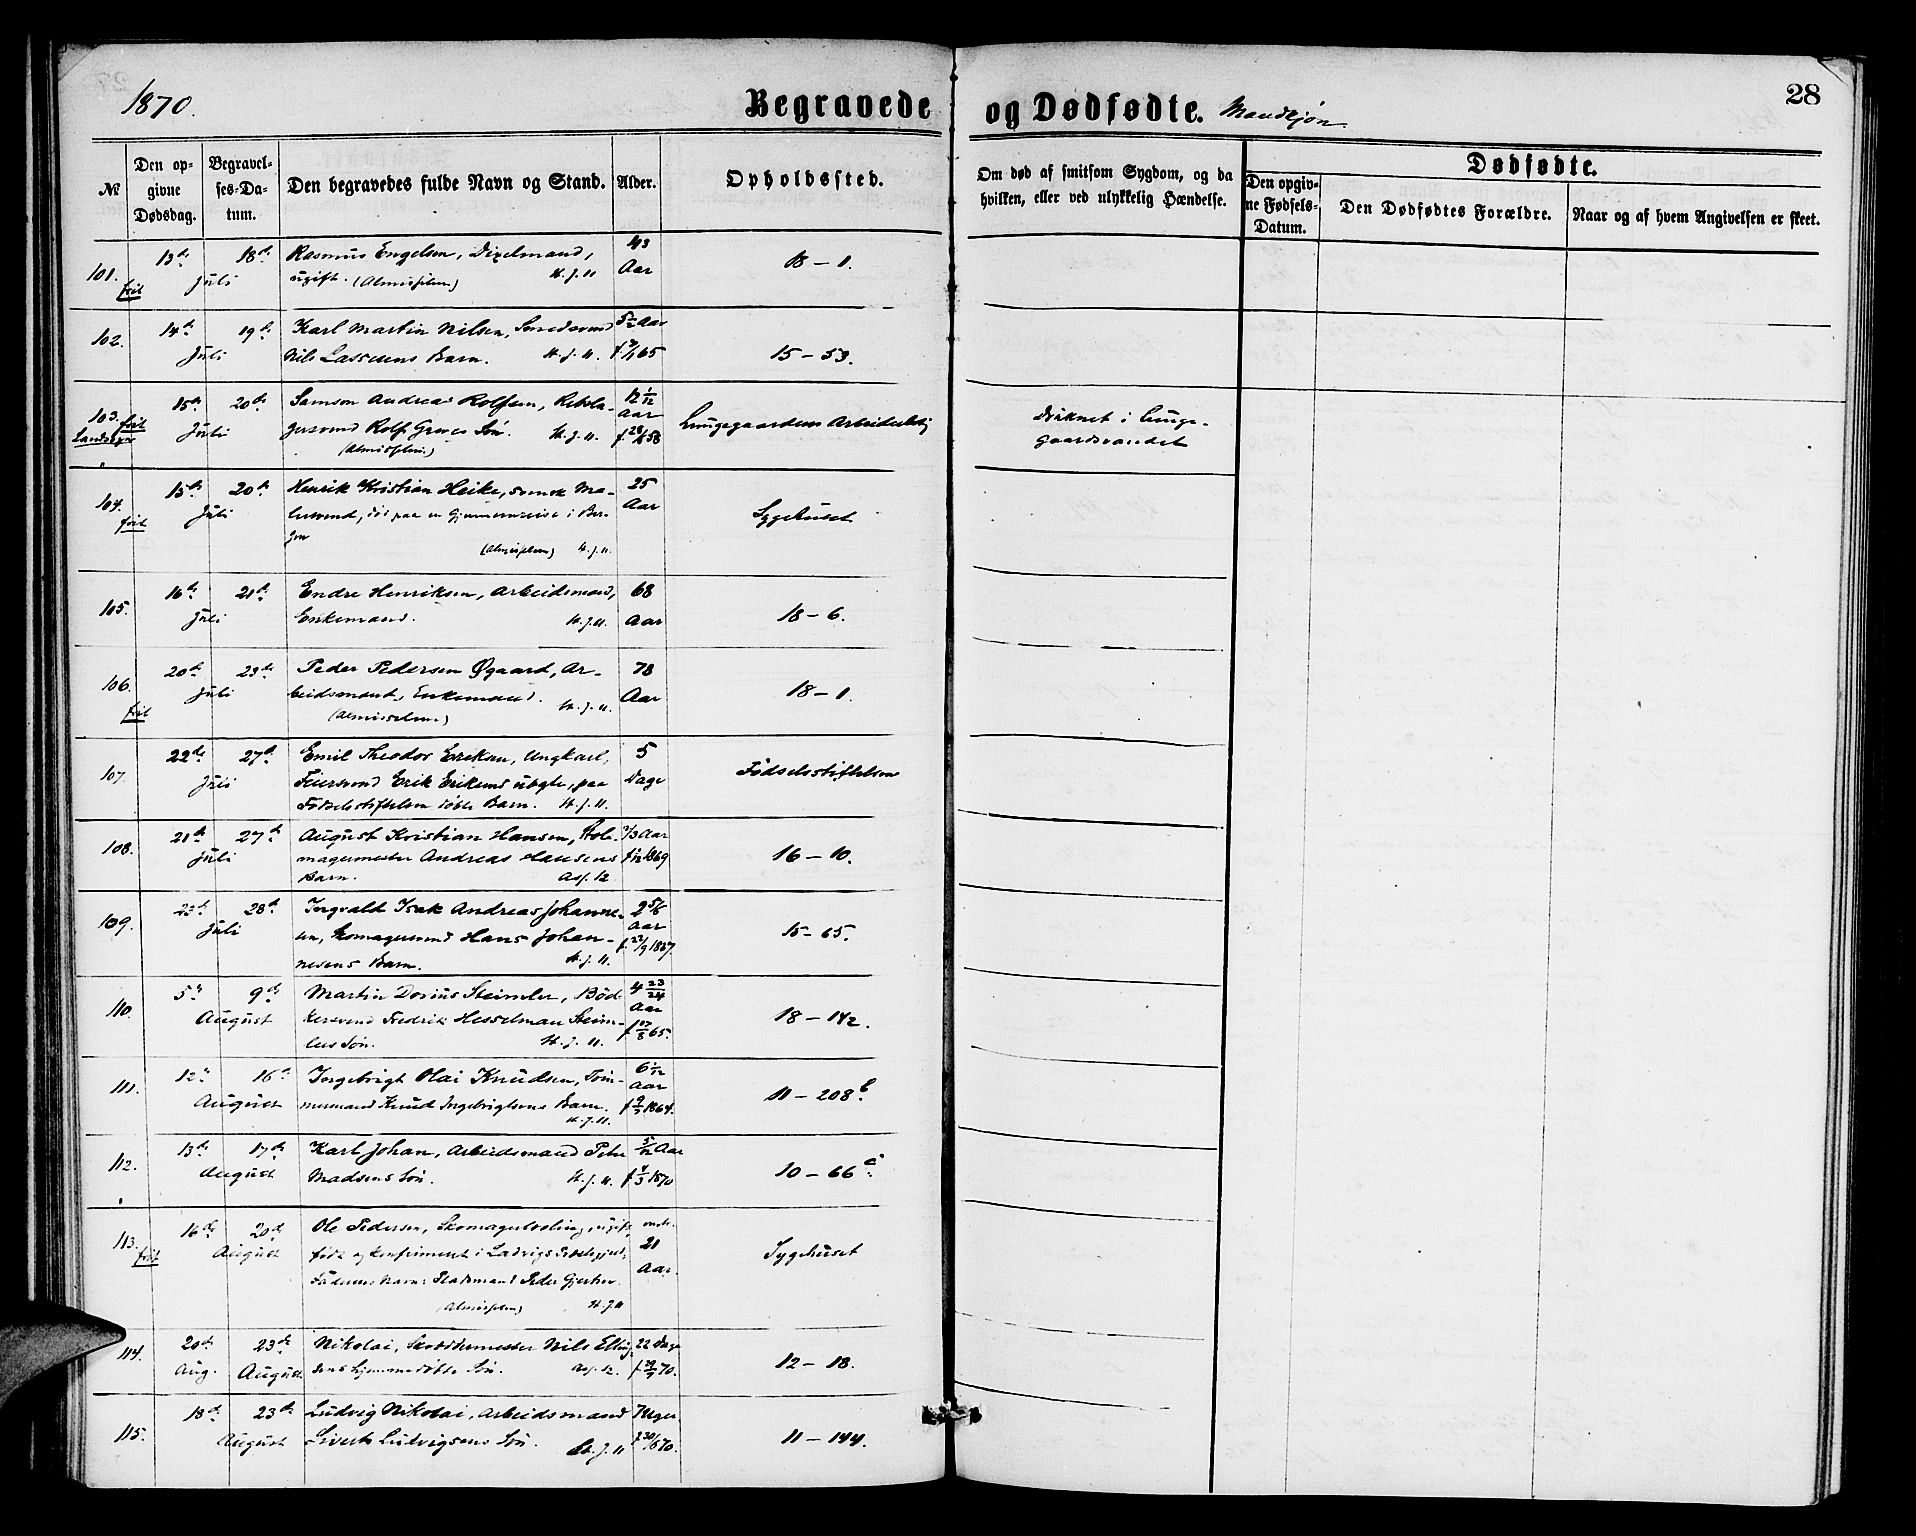 1870.
Begravede og Dødfødte. Mandkjøn.
28
№
Den opgivne Dødsdag.
Begravelses-Datum.
Den begravedes fulde Navn og Stand.
Alder.
Opholdssted.
Om død af smitsom Sygdom, og da hvilken, eller ved ulykkelig Hændelse.
Dødfødte.
Den opgivne Fødsels-Datum.
Den Dødfødtes Forældre.
Naar og af hvem Angivelsen er skeet.
101. 13de 18de Rasmus Engelsen, 43
frit Juli ugift. (Almisselem) St. J. 11 Aar 18 – 1.
102. 14de 19de Karl Martin Nilsen, Smedsvend 5 1/2 Aar
Juli Nils Lassens Barn. St. J. 11. 15 – 53.
103. frit 15de 20de Samson Andreas Rolfsen, Rebsla-
Juli gersvend Rolf Grones Søn. St. J. 11. 12 1/12 Aar
(Almisselem.)
Druknet i Lunge-
gaardsvandet
104. 15de 20de Henrik Kristian Heike, svensk Ma- 25
frit Juli lersvend, død paa en Gjennemreise i Ber- Aar Sygehuset
gen
(Almisselem) St. J. 11.
105. 16de 21de Endre Henriksen, Arbeidsmand, 68
Juli Enkemand. St. J. 11. Aar 18 – 6.
106. 20de 23de Peder Pedersen Øgaard, Ar- 78
frit Juli beidsmand, Enkemand. St. J. 11. Aar 18 – 1.
(Almisselem)
107. 22de 27de Emil Theodor Eriksen, Ungkarl, 5
Juli Feiersvend Erik Eriksens uægte, paa Dage Fødselsstiftelsen
Fødselsstiftelsen døbte Barn. St. J. 11.
108. 21de 27de August Kristian Hansen, Stol- 2/3 Aar
Juli magermester Andreas Hansens 16 – 10.
Barn. Asf. 12
109. 23de 28de Ingvald Isak Andreas Johanne- 2 5/6
Juli sen, Skomagersvend Hans Johan- Aar 15 – 65.
nesens Barn. St. J. 11. f. 22/9 1867.
110. 5te 9de Martin Dorius Steimler, Bød- 4 23/24
August kersvend Fredrik Hesselman Steim- Aar 18 – 142.
lers Søn. St. J. 11. f. 17/8 65.
111. 12te 16de Ingebrigt Olai Knudsen, Tøm- 6 1/12
Aar
August mermand Knud Ingebrigtsens Barn. 1864. 11 – 208 b.
St. J. 11.
112. 13de 17de Karl Johan, Arbeidsmand Peter 5/12 Aar
August Madsens Søn. St. J. 11. 1870 10 – 66 c.
113. 16de 20de Ole Pedersen, ugift,
frit August født og konfirmeret i Ladvigs Præstegjeld, 21 Sygehuset
Faderens Navn: Pladsmand Peder Aar.
(Almisselem) St. J. 11
114. 20de 23de Nikolai, Skræddermester Nils Elling- 22 Dage
Aug. August sens hjemmedøbte Søn. Asf. 12. f. 29/7 70. 12 – 18.
115. 18de 23de Ludvig Nikolai, Arbeidsmand 7 Uger
August Siverts Ludvigsens Søn. St. J. 11 f. 30/6 70. 11 – 144.